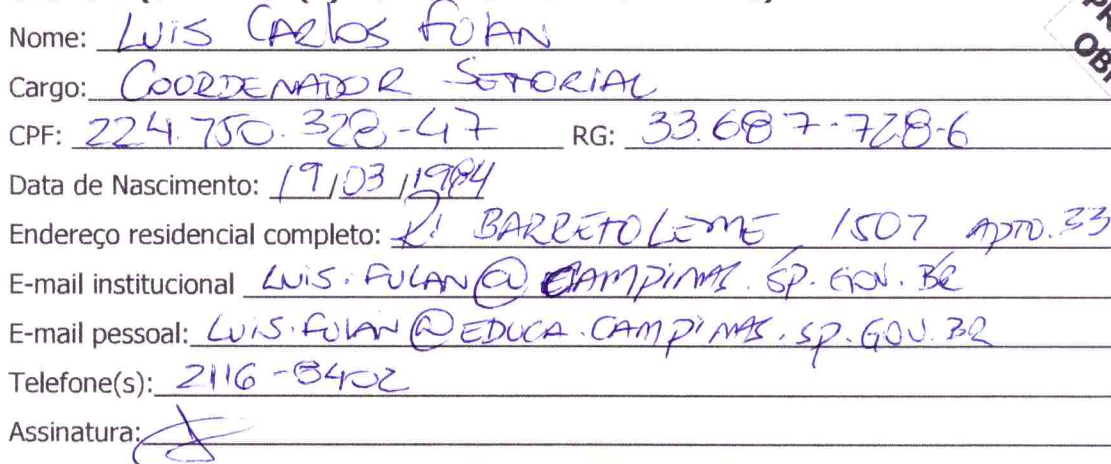 Nome: LUIS CARLOS FULAN
Cargo: COORDENADOR SETORIAL
CPF: 224.750.328-47 RG: 33.687.728-6
Data de Nascimento: 19/03/1984
Endereço residencial completo: R: BARRETO LEME, 1507 APTO. 33
E-mail institucional LUIS.FULAN@CAMPINAS.SP.GOV.BR
E-mail pessoal: LUIS.FULAN@EDUCA.CAMPINAS.SP.GOV.BR
Telefone(s): 2116-8402
Assinatura: